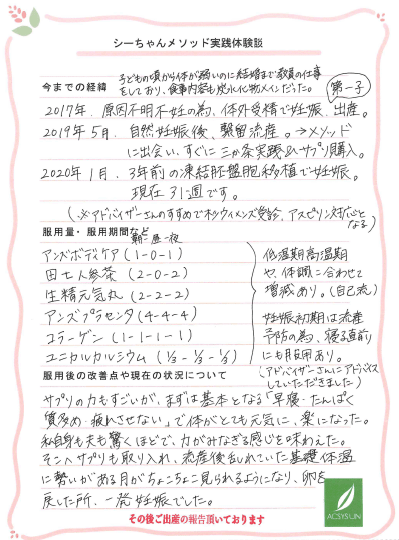 シーちゃんメソッド実践体験談
今までの経緯 子どもの頃から体が弱いのに結婚まで教員の仕事
をしており、食事内容も炭水化物メインだった。 第一子
2017年. 原因不明不妊の為、体外受精で妊娠、出産。
2019年5月. 自然妊娠後、稽留流産。→メソッド
に出会い、すぐに三か条実践&サプリ購入。
2020年1月. 3年前の凍結胚盤胞移植で妊娠。
現在31週です。
(※アドバイザーさんのすすめでホウィメンズ受診、アスピリン対応となる)
服用量・服用期間など 朝-昼-夜
アンズボディケア (1-0-1)
田七人参茶 (2-0-2)
生精元気丸 (2-2-2)
アンズプラセンタ (4-4-4)
コラーゲン (1-1-1-1)
ユニカルカルシウム (1/3-1/3-1/3)
低温期高温期
や、体調に合わせて
増減あり。(自己流)
妊娠初期は流産
予防の為、寝る直前
にも服用あり。
(アドバイザーさんにアドバイス
していただきました)
服用後の改善点や現在の状況について
サプリの力もすごいが、まずは基本となる「早寝・たんぱく
質多め・疲れさせない」で体がとても元気に、楽になった。
私自身も夫も驚くほどで、力がみなぎる感じを味わえた。
そこへサプリも取り入れ、流産後乱れていた基礎体温
に勢いがある月がちょこちょこ見られるようになり、卵を
戻した所、一発妊娠でした。
その後ご出産の報告頂いております
ACSYSUN